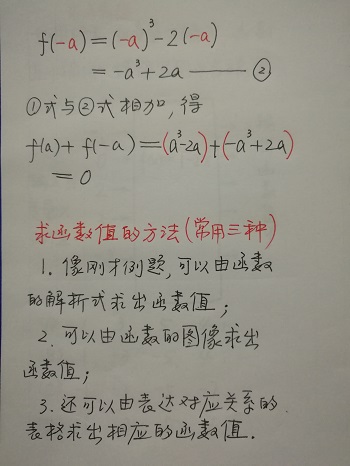 f(-a)=(-a)³-2(-a)
=-a³+2a——②
①式与②式相加,得
f(a)+f(-a)=(a³-2a)+(-a³+2a)
=0
求函数值的方法(常用三种)
1.像刚才例题,可以由函数
的解析式求出函数值;
2.可以由函数的图像求出
函数值;
3.还可以由表达对应关系的
表格求出相应的函数值.